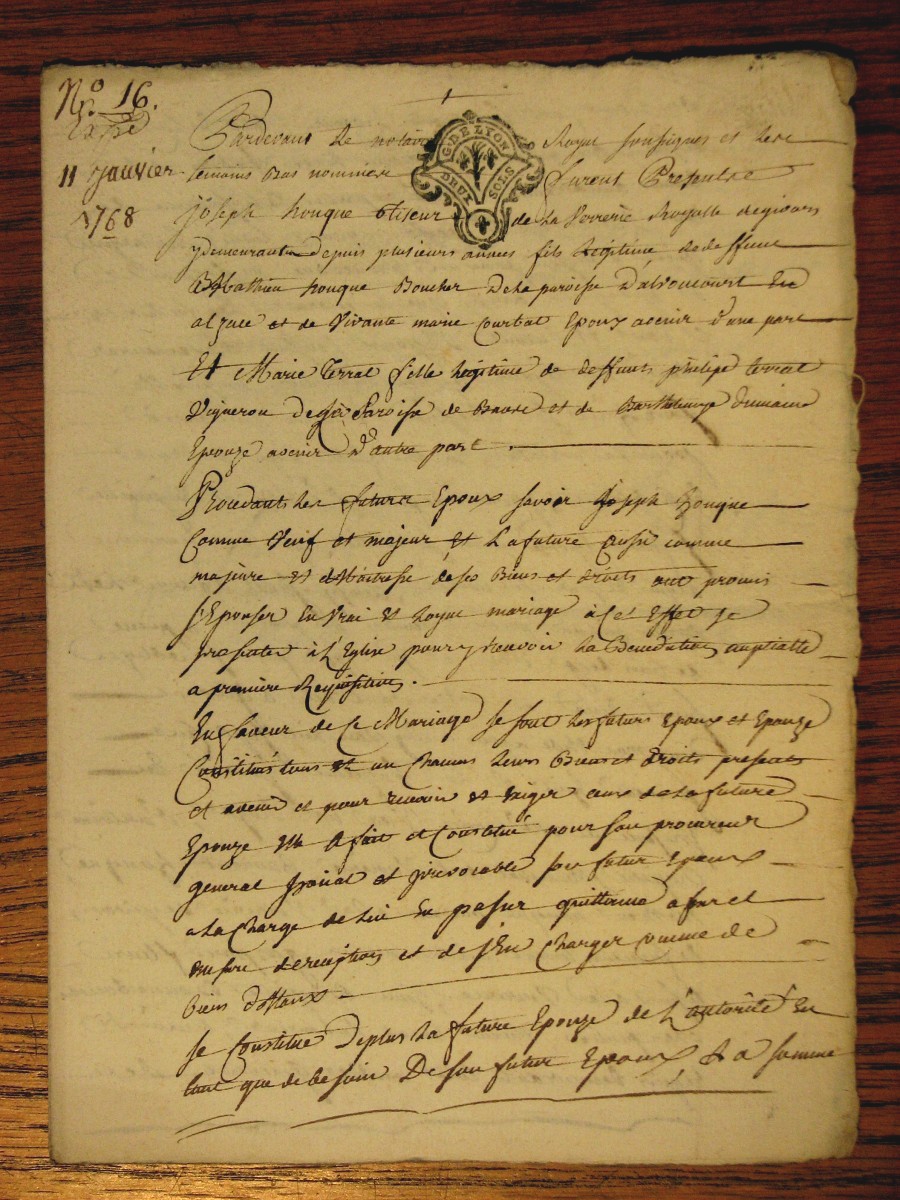 N.o 16.
Expé
11 Janvier
1768
G. DE LYON
DEUX SOLS
Pardevant Le notaire Royal soussignes et Les
temoins Bas nommées furent Presents
Joseph houque Otiseur de La Verrerie Royalle de givors
y demeurant Depuis plusieurs années fils Legitime de deffunt
Mathieu houque Boucher De la paroisse D'
alzace et de Vivante marie Courbat Epoux avenir d'une part
Et Marie Terrat fille Legitime de deffunts philipe terrat
Vigneron de la Paroisse de et de Barthelemye Dumaine
Epouze avenir D'autre part.
Procedants Les futurs Epoux savoir Joseph houque
Comme Veuf et majeur et La future aussi comme
majeure et Maitresse de ses Biens et droits ont promis
s'Epouser En Vrai et Loyal mariage à Cet Effet se
presenter à L'Eglise pour y recevoir La Benediction nuptialle
a premiere Requisition.
En faveur de Ce Mariage se sont Les futurs Epoux et Epouze
Constitués tous et un Chacuns Leurs Biens et droits presents
et avenir et pour recevoir et Exiger ceux de La future
Epouze Elle A fait et Constitué pour son procureur
general special et irrevocable son futur Epoux
a La Charge de Lui En passer quittance a fur et
mesure de reception et de s'En Charger comme de
biens dottaux
se Constitue De plus La future Epouze de L'autorité En
tant que de besoin De son futur Epoux, La somme